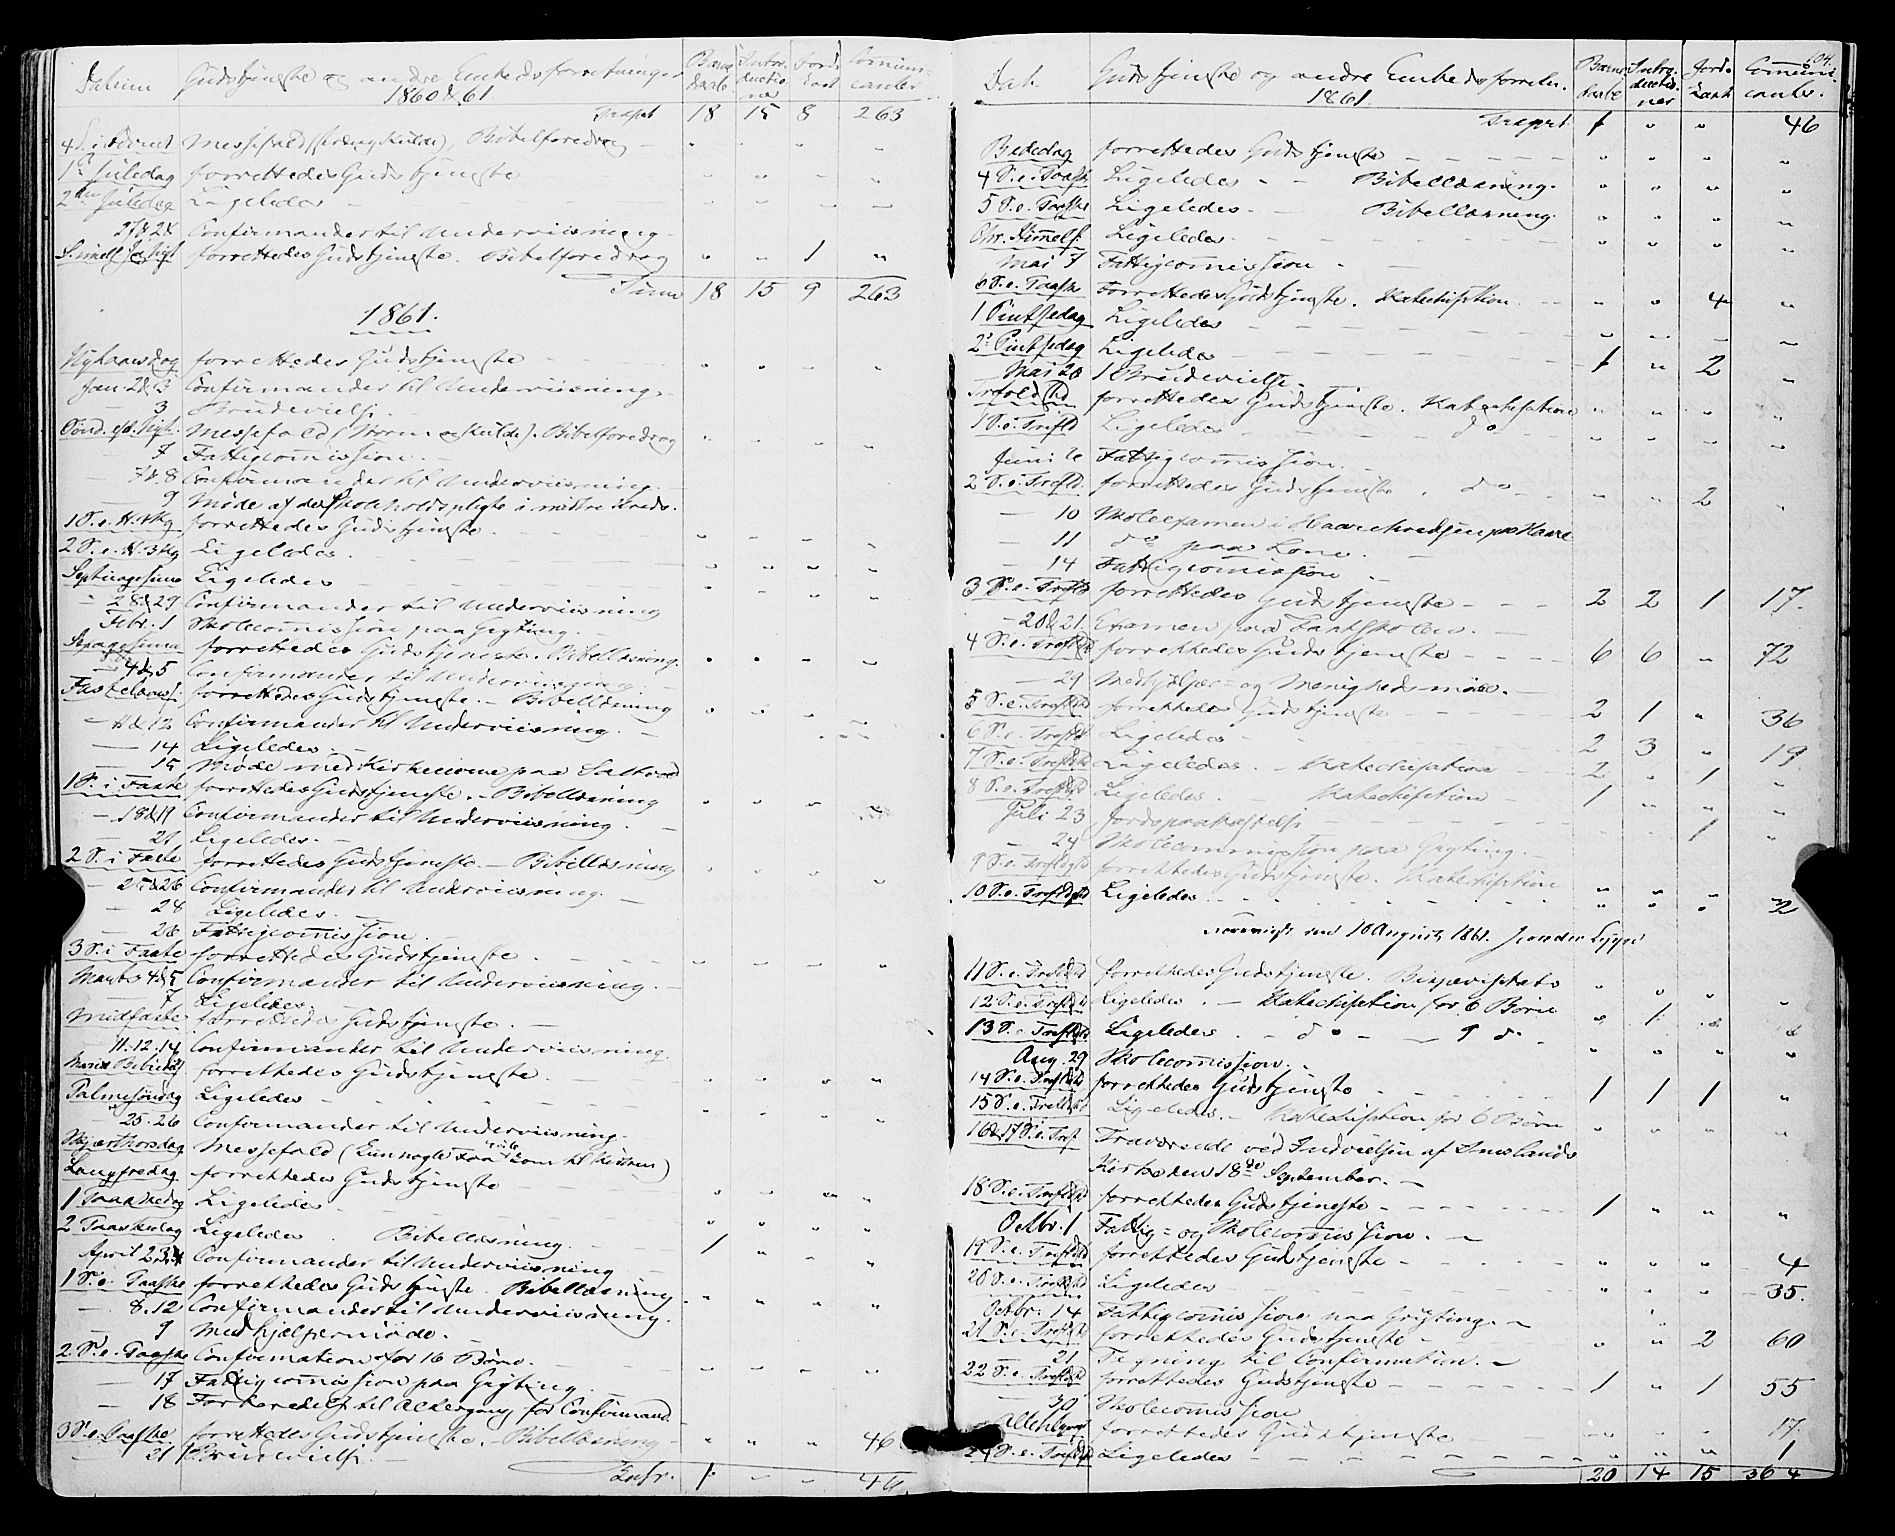 Datum Gudstjeneste og andre Embedsforretninger Barne Intro Jords Commun
1860 & 61 daab ductio kast canter
ner
Transpt 18 15 8 263
4 S. i Advent Messefald, Bibelforedrag " " " "
1ste Juledag forrettedes Gudstjeneste " " " "
2den Juledag Ligeledes " " " "
27 & 28 Confirmander til Underviisning
forrettedes Gudstjeneste. Bibelforedrag " " 1 "
Summa 18 15 9 263
1861.
Nytaarsdag forrettedes Gudstjeneste " " " "
Jan. 2 & 3 Confirmander til Underviisning
3 Brudevielse
Sønd. eft. Nyt. Messefald (Storm og Kulde). Bibelforedrag " " " "
7 Fattigcomission.
7 & 8 Confirmander til Underviisning
9 Møde af de Skoleholdspligte i midtre Kreds.
1 S. e. H. 3 Kg forrettedes Gudstjeneste " " " "
2 S. e. H. 3 Kg Ligeledes " " " "
Septuagesima Ligeledes " " " "
28 & 29 Confirmander til Underviisning
Febr. 1 Skolecomission paa Gryting.
Sexagesima forrettedes Gudstjeneste. Bibellæsning. " " " "
4 & 5 Confirmander til Underviisning
Fastelavns s. forrettedes Gudstjeneste. - Bibellæsning " " " "
11 & 12 Confirmander til Underviisning.
14 Ligeledes.
15 Møde med Kirkeeierne paa
1 S. i Faste forrettedes Gudstjeneste. - Bibellæsning " " " "
18 & 19 Confirmander til Underviisning.
21 Ligeledes.
2 S. i Faste forrettedes Gudstjeneste. - Bibellæsning " " " "
25 & 26 Confirmander til Underviisning.
28 Ligeledes.
28 Fattigcomission.
3 S. i Faste forrettedes Gudstjeneste " " " "
Marts 4 & 5 Confirmander til Underviisning.
7 Ligeledes.
Midfaste forrettedes Gudstjeneste.
11. 12. 14 Confirmander til Underviisning.
Mariæ Bebud. forrettedes Gudstjeneste. " " " "
Palmesøndag Ligeledes " " " "
25. 26 Confirmander til Underviisning.
Skjærthorsdag Messefald (Kun nogle Faa kom til Kirken)
Langfredag forrettedes Gudstjeneste " " " "
1 Paaskedag Ligeledes. " " " "
2 Paaskedag Ligeledes. Bibellæsning. 1 " " "
April 2 Confirmander til Underviisning
1 S. e. Paaske forrettedes Gudstjeneste. Bibellæsning " " " "
8. 12 Confirmander til Underviisning.
9 Medhjælpermøde.
2 S. e. Paaske Confirmation for 16 Børn. " " " "
17 Fattigcomission paa Gryting.
18 Forberedelse til Altergang for Confirmand.
3 S. e. Paaske forrettedes Gudstjeneste. - Bibellæsning " " " 46
21 Brudevielse.
Transp. 1 " " 46
604.
Dat. Gudstjeneste og andre Embedsforretn. Barne Intro Jords Commun
1861. daabe ductio kast canter.
ner
Transprt. 1 " " 46
Bededag forrettedes Gudstjeneste " " " "
4 S. e. Paaske Ligeledes - Bibellæsning. " " " "
5 S. e. Paaske Ligeledes - Bibellæsning. " " " "
Chr. Himmelf. Ligeledes " " " "
Mai 7 Fattigcomission
6 S. e. Paaske Forrettedes Gudstjeneste. Katechisation " " 4 "
1 Pintsedag Ligeledes " " " "
2. Pintsedag Ligeledes 1 " 2 "
Mai 20 1 Brudevielse.
Trefoldighd forrettedes Gudstjeneste. Katechisation " " " "
1 S. e. Trefld Ligeledes do " " " "
Juni 6 Fattigcomission.
2 S. e. Trefld. forrettedes Gudstjeneste. do " " 2 "
10 Skoleexamen i
11 do paa
14 Fattigcomission
3 S. e. Trefld forrettedes Gudstjeneste 2 2 1 17.
20 & 21. Examen paa Fastskolen.
4 S. e. Trefld forrettedes Gudstjeneste 6 6 " 72
21 Medhjælper- og Menighedsmøde.
5 S. e. Trefld forrettedes Gudstjeneste 2 1 " 36
6 S. e. Trefld Ligeledes 2 3 " 19
7 S. e. Trefld Ligeledes. - Katechisation 2 " 1 "
8 S. e. Trefld Ligeledes. - Katechisation 1 " " "
Juli 23 Jordspaakastelse 1
24 Skolecommission paa Gryting.
9 S. e. Trefldgh forrettedes Gudstjeneste. Katechisation " " " "
10 S. e. Trefldgh Ligeledes " " " 32
10 August 1861.
11 S. e. Trefld forrettedes Gudstjeneste. Bispevisitats " " " "
12 S. e. Trefld Ligeledes. - Katechisation for 6 Børn " 1 " "
13 S. e. Trefld Ligeledes. - do - 9 do " " " "
Aug. 29 Skolecomission.
14 S. e. Trefld forrettedes Gudstjeneste 1 1 1 "
15 S. e. Trefld Ligeledes. - Katechisation for 6 Børn " " " "
16 & 17 S. e. Tref. Fraværende ved Indvielsen af
Kirke den 18de September.
18 S. e. Trefld forrettedes Gudstjeneste 1 " " "
Octbr. 1 Fattig- og Skolecomission.
19 S. e. Trefld forrettedes Gudstjeneste " " " 4
20 S. e. Trefld Ligeledes " " " 35.
Octbr. 14 Fattigcomission paa Gryting.
21 S. e. Trefld forrettedes Gudstjeneste " " 2 60
21 Tegning til Confirmation.
22 S. e. Trefld forrettedes Gudstjeneste 1 " 1 55
30 Skolecomission
Allehlgn. forrettedes Gudstjeneste " " " 17.
24 S. e. Trefld Ligeledes " " " 1
20 14 15 364